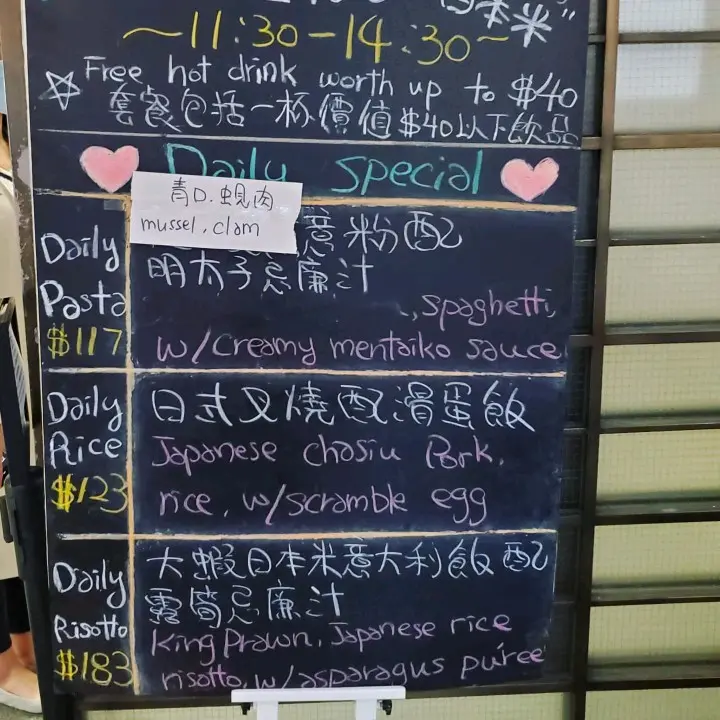 日本米”
～11:30-14:30～
☆ Free hot drink worth up to $40
套餐包括一杯價值$40以下飲品
Daily special
青口.蜆肉
mussel, clam
Daily
Pasta
$117
意粉配
明太子忌廉汁
, spaghetti,
w/creamy mentaiko sauce
Daily
Rice
$123
日式叉燒配滑蛋飯
Japanese chasiu Pork,
rice, w/scramble egg
Daily
Risotto
$183
大蝦日本米意大利飯配
露筍忌廉汁
King Prawn, Japanese rice
risotto, w/asparagus purée